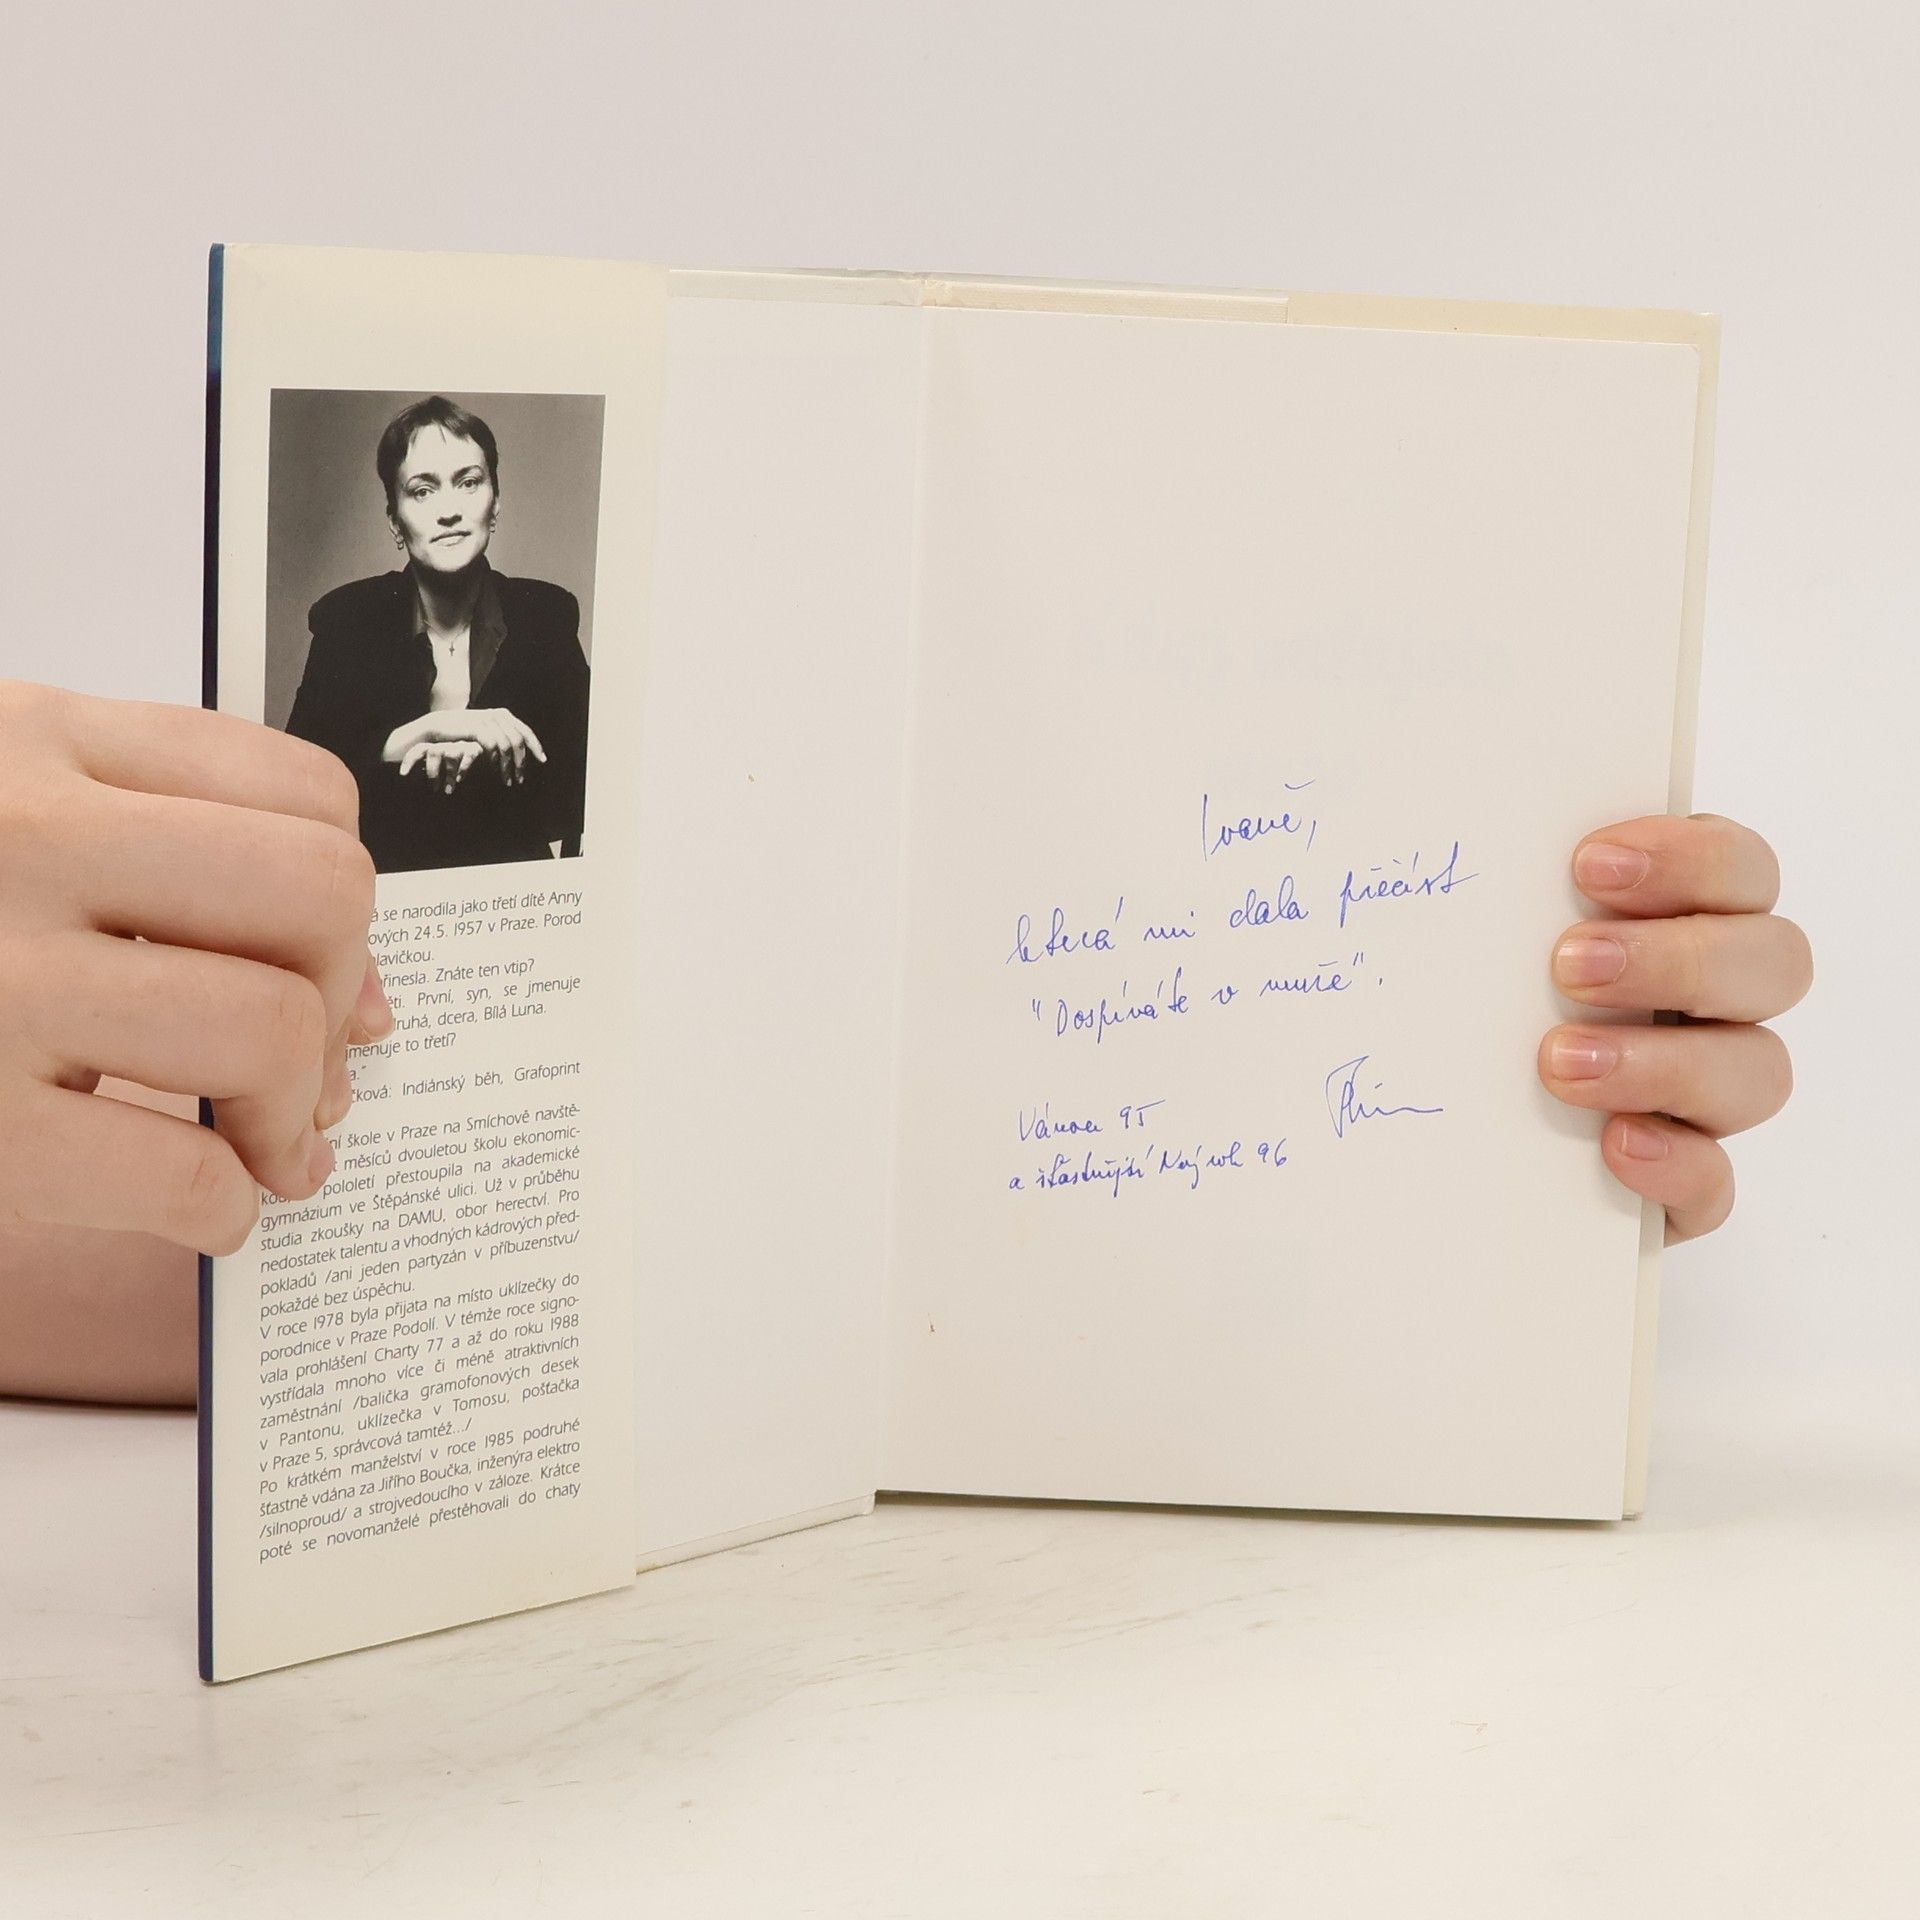 á se narodila jako třetí dítě Anny
ových 24.5. 1957 v Praze. Porod
hlavičkou.
přinesla. Znáte ten vtip?
ěti. První, syn, se jmenuje
druhá, dcera, Bílá Luna.
jmenuje to třetí?
a."
čková: Indiánský běh, Grafoprint
ní škole v Praze na Smíchově navště-
t měsíců dvouletou školu ekonomic-
kou, pololetí přestoupila na akademické
gymnázium ve Štěpánské ulici. Už v průběhu
studia zkoušky na DAMU, obor herectví. Pro
nedostatek talentu a vhodných kádrových před-
pokladů /ani jeden partyzán v příbuzenstvu/
pokaždé bez úspěchu.
V roce 1978 byla přijata na místo uklízečky do
porodnice v Praze Podolí. V témže roce signo-
vala prohlášení Charty 77 a až do roku 1988
vystřídala mnoho více či méně atraktivních
zaměstnání /balička gramofonových desek
v Pantonu, uklízečka v Tomosu, pošťačka
v Praze 5, správcová tamtéž.../
Po krátkém manželství v roce 1985 podruhé
šťastně vdána za Jiřího Boučka, inženýra elektro
/silnoproud/ a strojvedoucího v záloze. Krátce
poté se novomanželé přestěhovali do chaty
Ivaně,
která mi dala přečíst
"Dospíváte v muže".
Vánoce 95
a šťastnější Nový rok 96